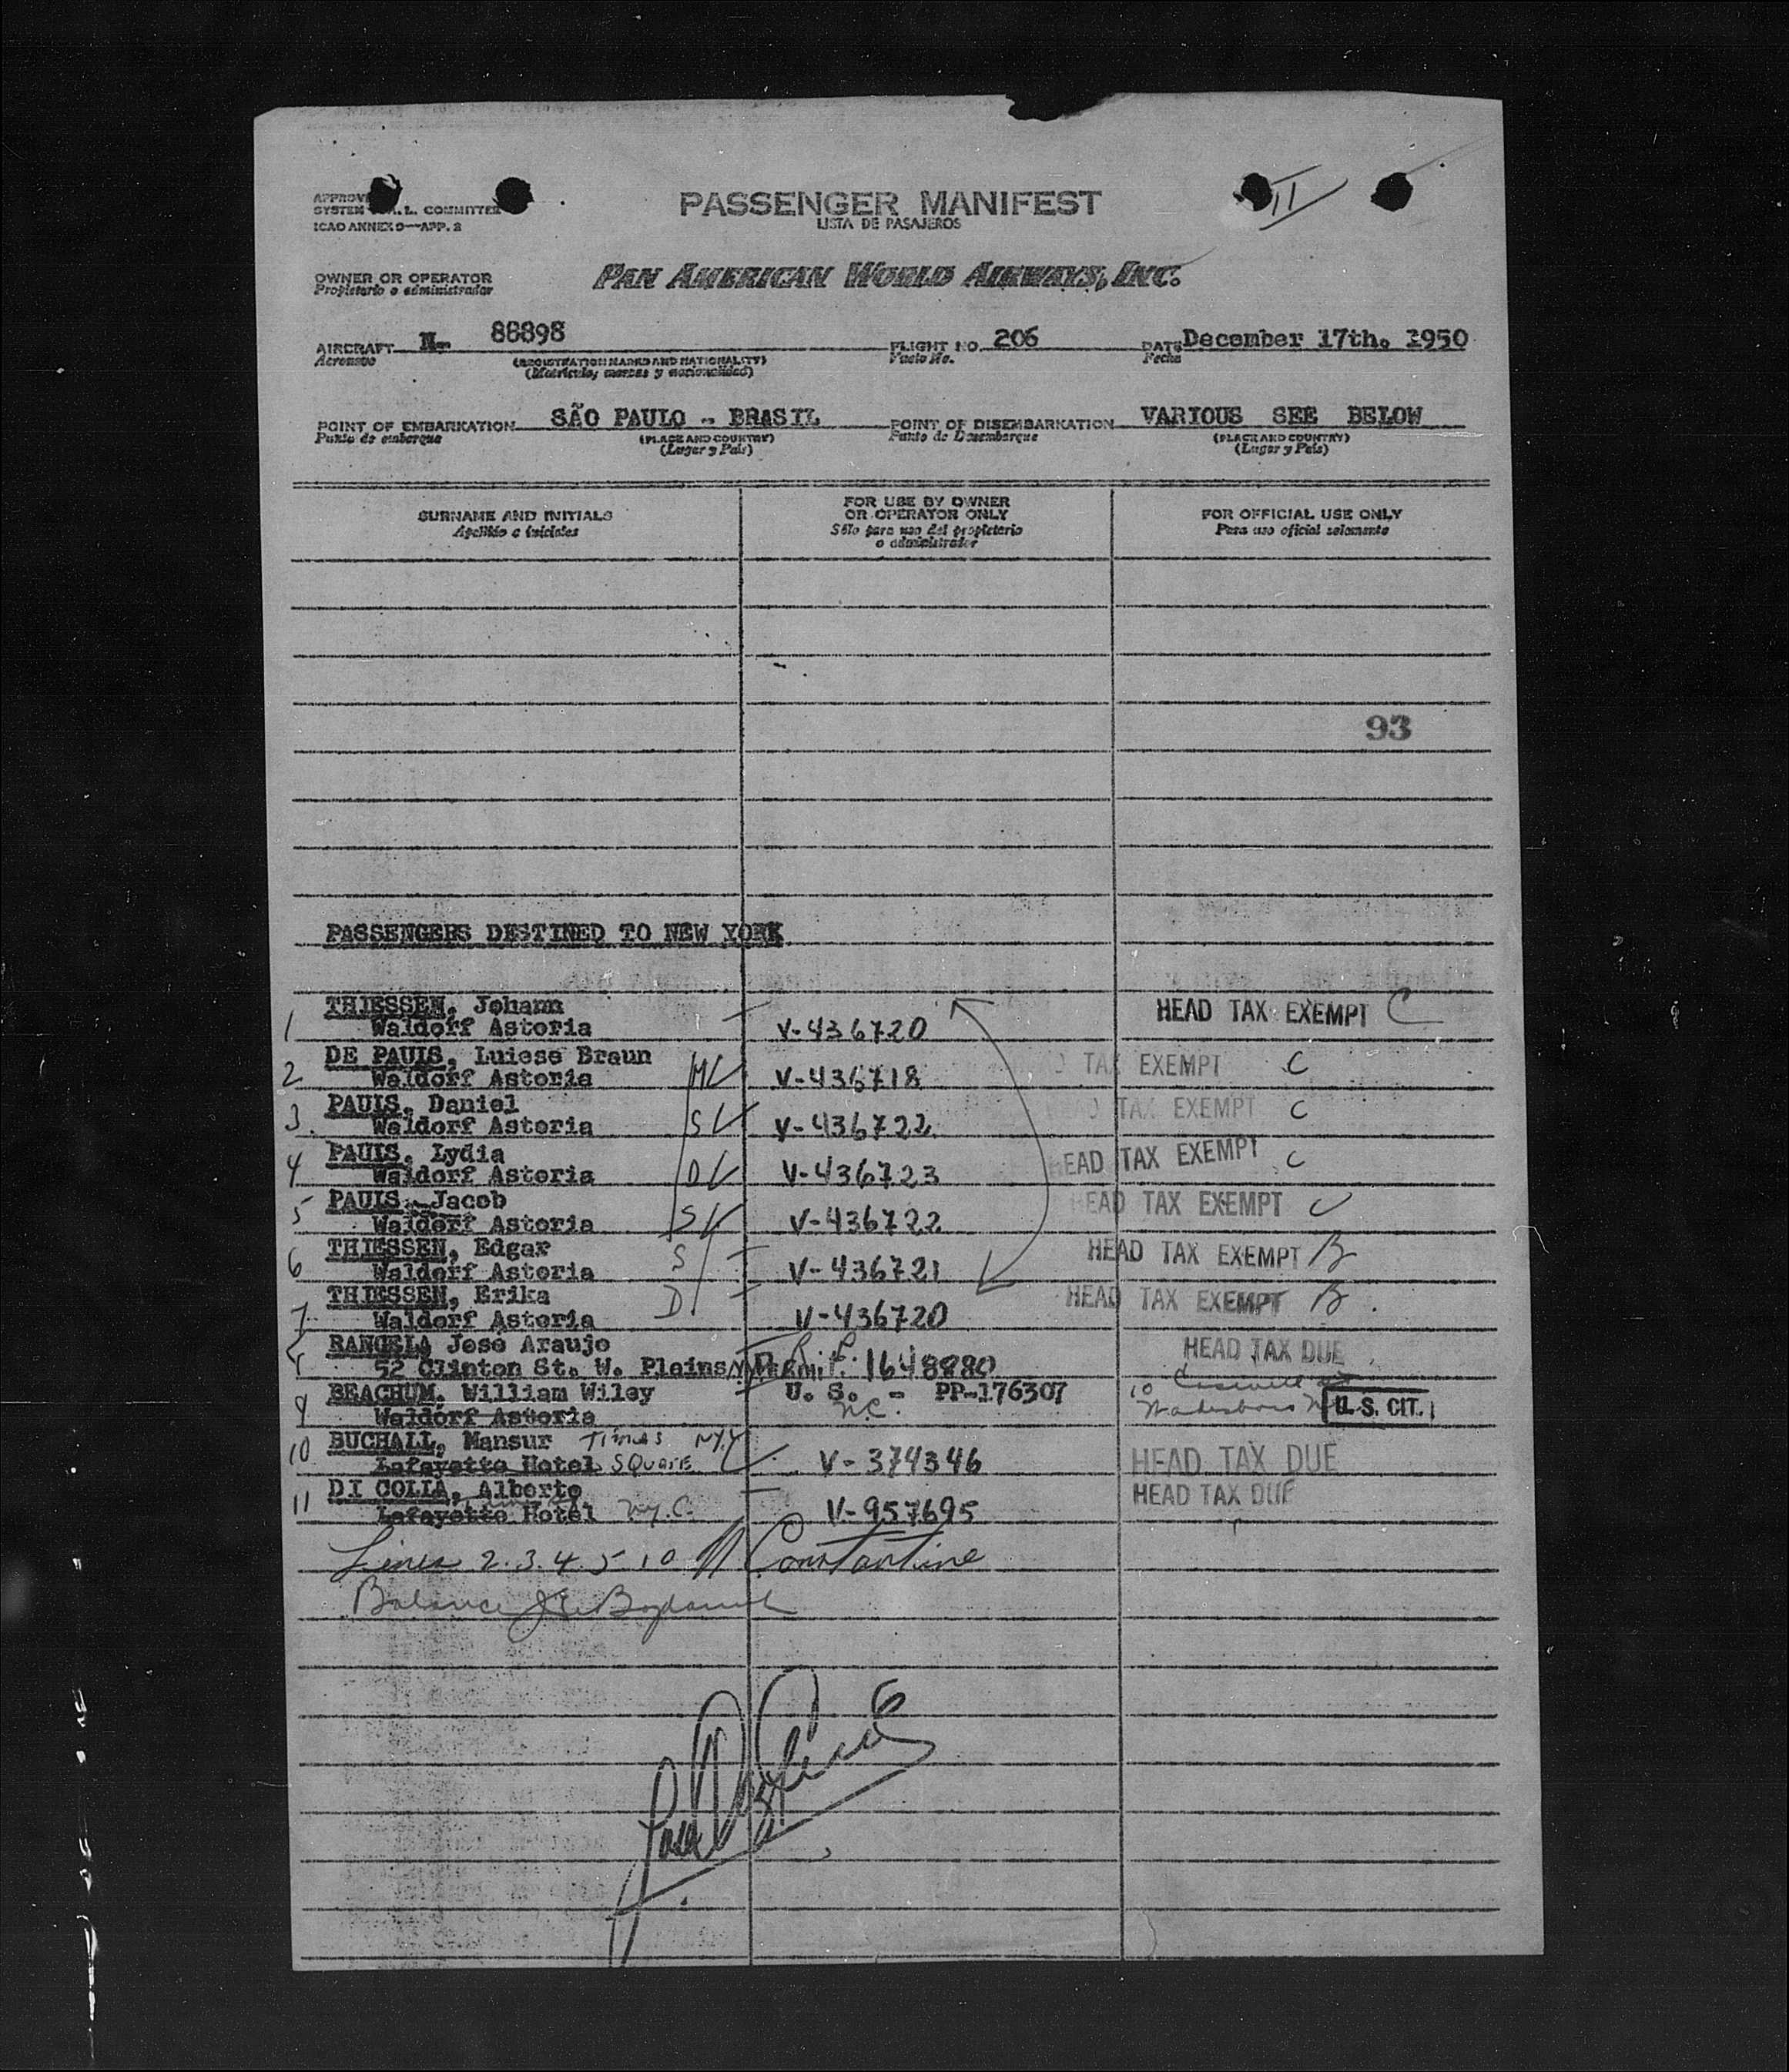 II
APPROV
SYSTEM A.L. COMMITTEE
ICAO ANNEX 9—APP. 2
PASSENGER MANIFEST
LISTA DE PASAJEROS
OWNER OR OPERATOR
Propietario o administrador
PAN AMERICAN WORLD AIRWAYS, INC.
AIRCRAFT N- 88898 FLIGHT NO. 206 DATE December 17th. 1950
Aeronave (REGISTRATION MARKS AND NATIONALITY) Vuelo No. Fecha
(Matrícula, marcas y nacionalidad)
POINT OF EMBARKATION SÃO PAULO - BRASIL POINT OF DISEMBARKATION VARIOUS SEE BELOW
Punto de embarque (PLACE AND COUNTRY) Punto de Desembarque (PLACE AND COUNTRY)
(Lugar y País) (Lugar y País)
SURNAME AND INITIALS FOR USE BY OWNER OR OPERATOR ONLY FOR OFFICIAL USE ONLY
Apellido e iniciales Sólo para uso del propietario o administrador Para uso oficial solamente
93
PASSENGERS DESTINED TO NEW YORK
THIESSEN, Johann HEAD TAX EXEMPT C
1 Waldorf Astoria V-436720
DE PAUIS, Luiese Braun M TAX EXEMPT C
2 Waldorf Astoria V-436718
PAUIS, Daniel S TAX EXEMPT C
3. Waldorf Astoria V-436722
PAUIS, Lydia D HEAD TAX EXEMPT C
4 Waldorf Astoria V-436723
PAUIS, Jacob S HEAD TAX EXEMPT C
5 Waldorf Astoria V-436722
THIESSEN, Edgar S HEAD TAX EXEMPT B
6 Waldorf Astoria V-436721
THIESSEN, Erika D HEAD TAX EXEMPT B.
7 Waldorf Astoria V-436720
RANGEL, José Araujo HEAD TAX DUE
52 Clinton St. W. Plains 1648880
BEACHUM, William Wiley U. S. - PP-176307 10
9 Waldorf Astoria N.C. Wadesboro U. S. CIT.
BUCHALL, Mansur Times N.Y.
10 Lafayette Hotel SQUARE V-374346 HEAD TAX DUE
DI COLIA, Alberto HEAD TAX DUE
11 Lafayette Hotel N.Y.C. V-957695
Lines 2.3.4.5 10 Constantine
Balance